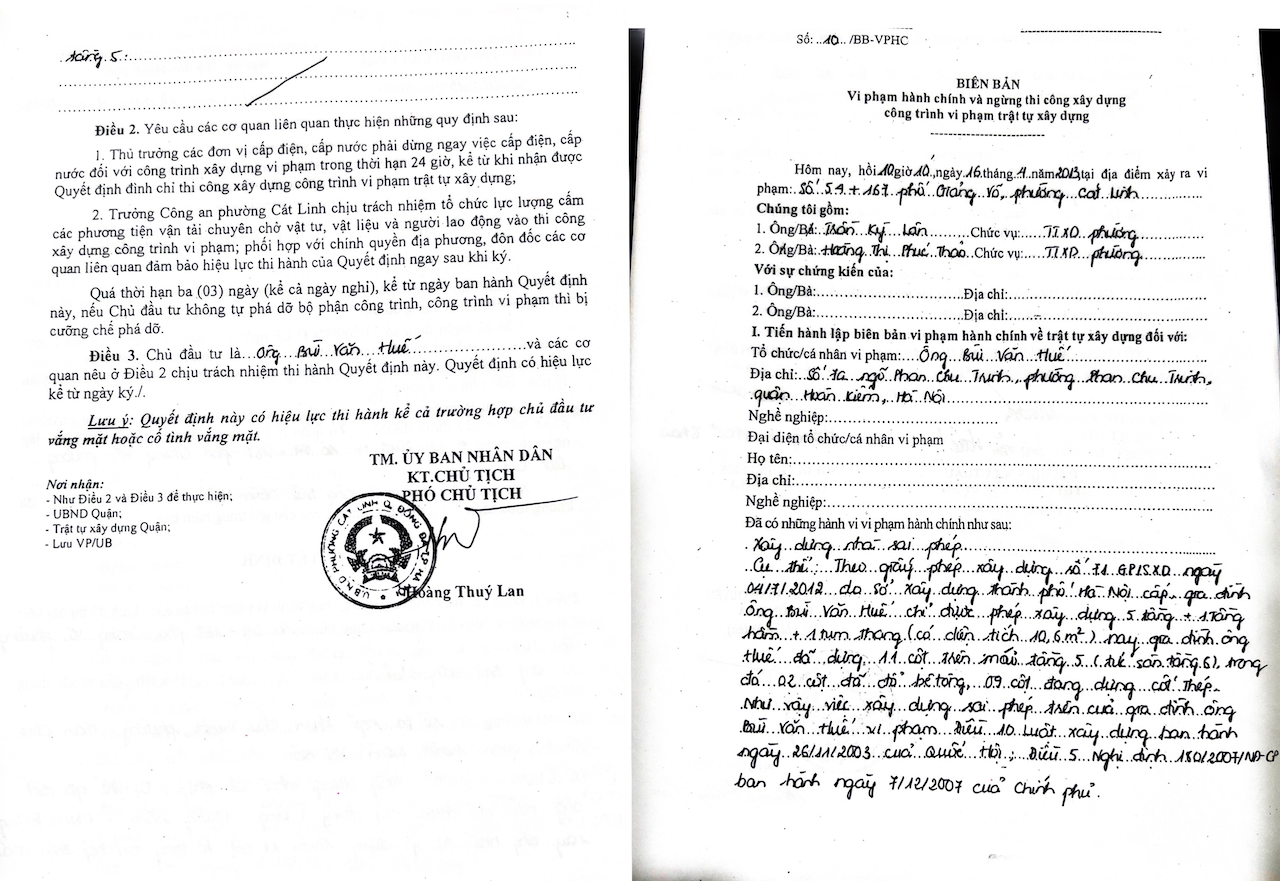 tầng 5:
Điều 2. Yêu cầu các cơ quan liên quan thực hiện những quy định sau:
1. Thủ trưởng các đơn vị cấp điện, cấp nước phải dừng ngay việc cấp điện, cấp
nước đối với công trình xây dựng vi phạm trong thời hạn 24 giờ, kể từ khi nhận được
Quyết định đình chỉ thi công xây dựng công trình vi phạm trật tự xây dựng;
2. Trưởng Công an phường Cát Linh chịu trách nhiệm tổ chức lực lượng cấm
các phương tiện vận tải chuyên chở vật tư, vật liệu và người lao động vào thi công
xây dựng công trình vi phạm; phối hợp với chính quyền địa phương, đôn đốc các cơ
quan liên quan đảm bảo hiệu lực thi hành của Quyết định ngay sau khi ký.
Quá thời hạn ba (03) ngày (kể cả ngày nghỉ), kể từ ngày ban hành Quyết định
này, nếu Chủ đầu tư không tự phá dỡ bộ phận công trình, công trình vi phạm thì bị
cưỡng chế phá dỡ.
Điều 3. Chủ đầu tư là...Ông Bùi Văn Huế...và các cơ
quan nêu ở Điều 2 chịu trách nhiệm thi hành Quyết định này. Quyết định có hiệu lực
kể từ ngày ký./.
Lưu ý: Quyết định này có hiệu lực thi hành kể cả trường hợp chủ đầu tư
vắng mặt hoặc cố tình vắng mặt.
TM. ỦY BAN NHÂN DÂN
KT.CHỦ TỊCH
PHÓ CHỦ TỊCH
Nơi nhận:
- Như Điều 2 và Điều 3 để thực hiện;
- UBND Quận;
- Trật tự xây dựng Quận;
- Lưu VP/UB
U.B.N.D PHƯỜNG CÁT LINH Q. ĐỐNG ĐA T.P HÀ
Hoàng Thuý Lan
Số: ..10.. /BB-VPHC
BIÊN BẢN
Vi phạm hành chính và ngừng thi công xây dựng
công trình vi phạm trật tự xây dựng
Hôm nay, hồi 10 giờ 10, ngày 16 tháng 4 năm 2013, tại địa điểm xảy ra vi
phạm: Số 5.9 + 167 phố Giảng Võ, phường Cát Linh
Chúng tôi gồm:
1. Ông/Bà: Trần Kỳ Lân Chức vụ: TTXD phường
2. Ông/Bà: Hoàng Thị Phúc Thảo Chức vụ: TTXD phường
Với sự chứng kiến của:
1. Ông/Bà: Địa chỉ:
2. Ông/Bà: Địa chỉ:
I. Tiến hành lập biên bản vi phạm hành chính về trật tự xây dựng đối với:
Tổ chức/cá nhân vi phạm: Ông Bùi Văn Huế
Địa chỉ: Số 1a ngõ Phan Chu Trinh, phường Phan Chu Trinh,
quận Hoàn Kiếm, Hà Nội
Nghề nghiệp:
Đại diện tổ chức/cá nhân vi phạm
Họ tên:
Địa chỉ:
Nghề nghiệp:
Đã có những hành vi vi phạm hành chính như sau:
Xây dựng nhà sai phép
Cụ thể: Theo giấy phép xây dựng số 71 GPSXD ngày
04/7/2012 do Sở xây dựng thành phố Hà Nội cấp, gia đình
Ông Bùi Văn Huế chỉ được phép xây dựng 5 tầng + 1 Tầng
hầm + 1 tum thang (có diện tích 10,6 m²) nay gia đình ông
Huế đã dựng 11 cột trên mái tầng 5 (tức sàn tầng 6), trong
đó 02 cột đã đổ bê tông, 09 cột đang dựng cốt Thép.
Như vậy việc xây dựng sai phép trên của gia đình ông
Bùi Văn Huế vi phạm Điều 10 Luật xây dựng ban hành
ngày 26/11/2003 của Quốc Hội; Điều 5 Nghị định 180/2007/NĐ-CP
ban hành ngày 7/12/2007 của Chính phủ.